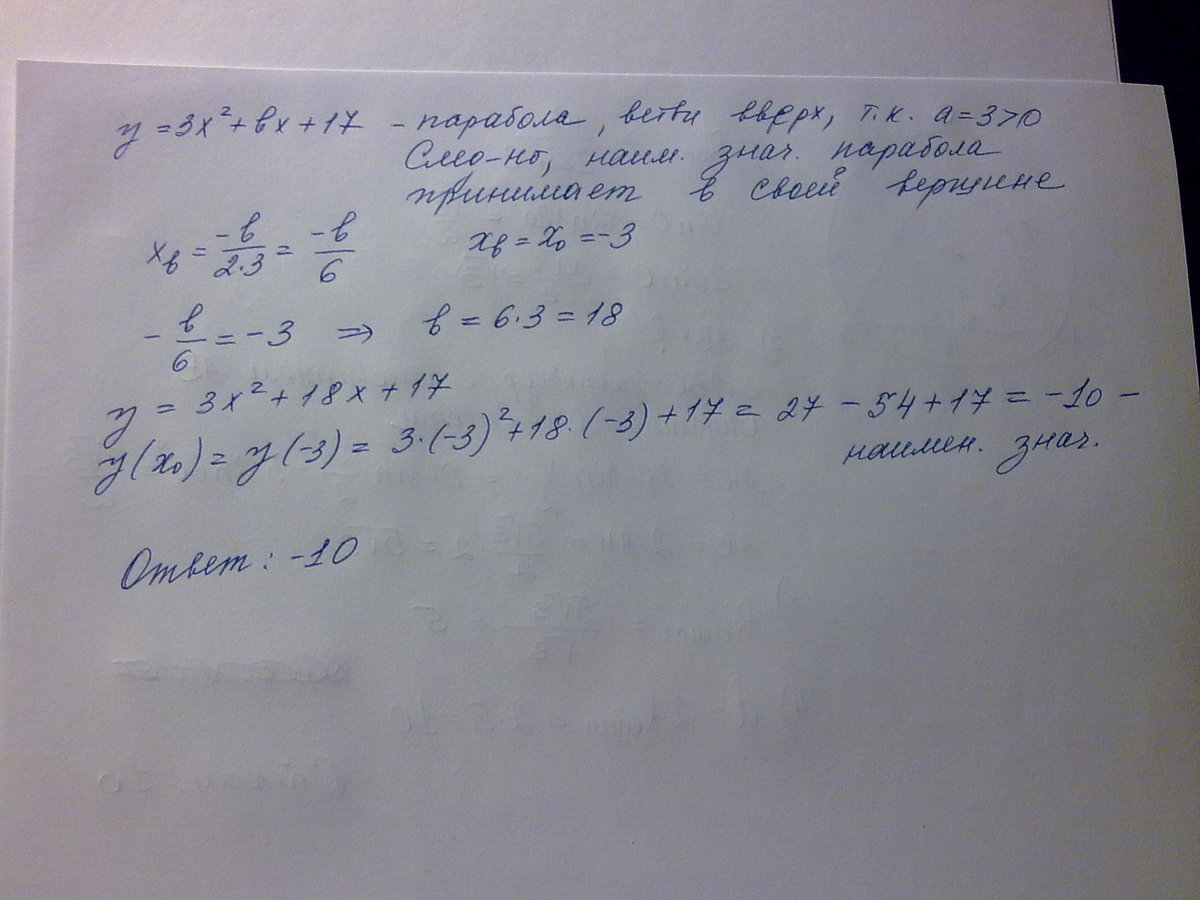 y = 3x² + bx + 17 - парабола, ветви вверх, т.к. a = 3 > 0
След-но, наим. знач. парабола
принимает в своей вершине
xв = -b/2·3 = -b/6 xв = x₀ = -3
- b/6 = -3 ⇒ b = 6·3 = 18
y = 3x² + 18x + 17
y(x₀) = y(-3) = 3·(-3)² + 18·(-3) + 17 = 27 - 54 + 17 = -10 -
наимен. знач.
Ответ: -10